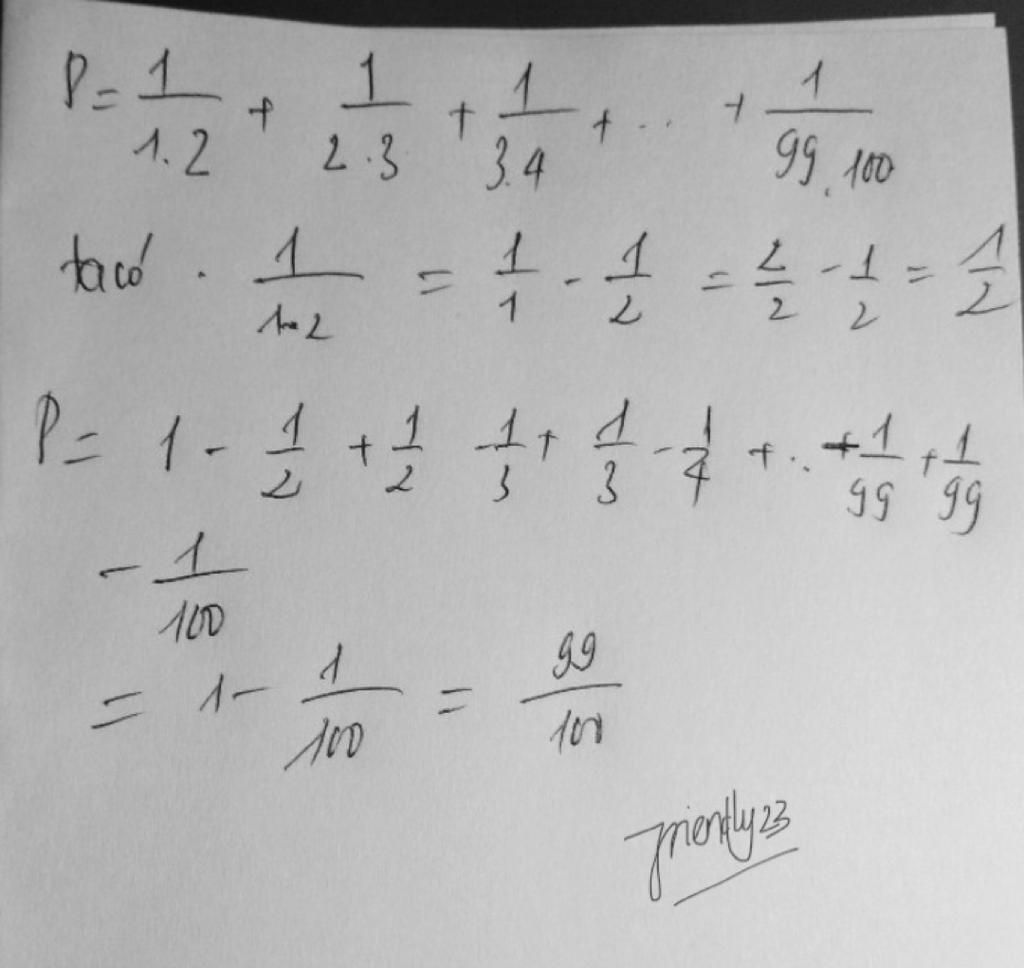 P = 1/1.2 + 1/2.3 + 1/3.4 + ... + 1/99.100
ta có . 1/1.2 = 1/1 - 1/2 = 2/2 - 1/2 = 1/2
P = 1 - 1/2 + 1/2 - 1/3 + 1/3 - 1/4 + .. + 1/99 + 1/99
- 1/100
= 1 - 1/100 = 99/100
friently23